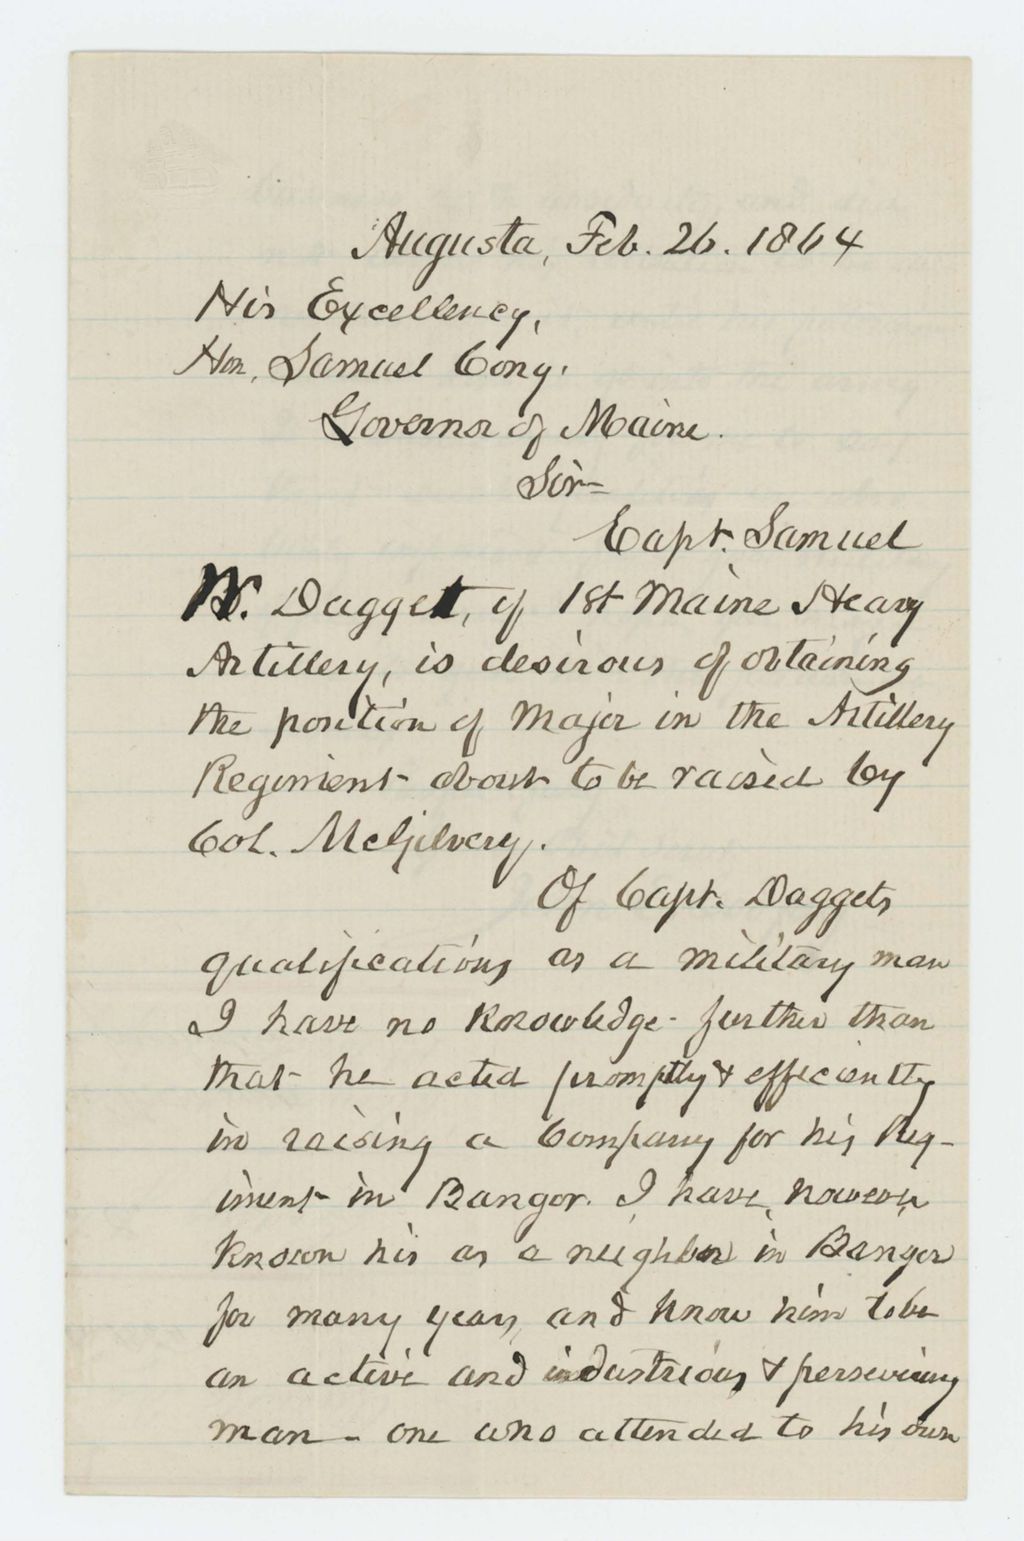 Augusta, Feb. 26. 1864
His Excellency,
Hon. Samuel Cony.
Governor of Maine.
Sir=
Capt. Samuel
W. Daggett, of 1st Maine Heavy
Artillery, is desirous of obtaining
the position of Major in the Artillery
Regiment about to be raised by
Col. McGilvery.
Of Capt. Daggets
qualifications as a military man
I have no knowledge further than
that he acted promptly & efficiently
in raising a Company for his Reg-
iment in Bangor. I have, however
known his as a neighbor in Bangor
for many years, and know him to be
an active and industrious & persevering
man - one who attended to his own